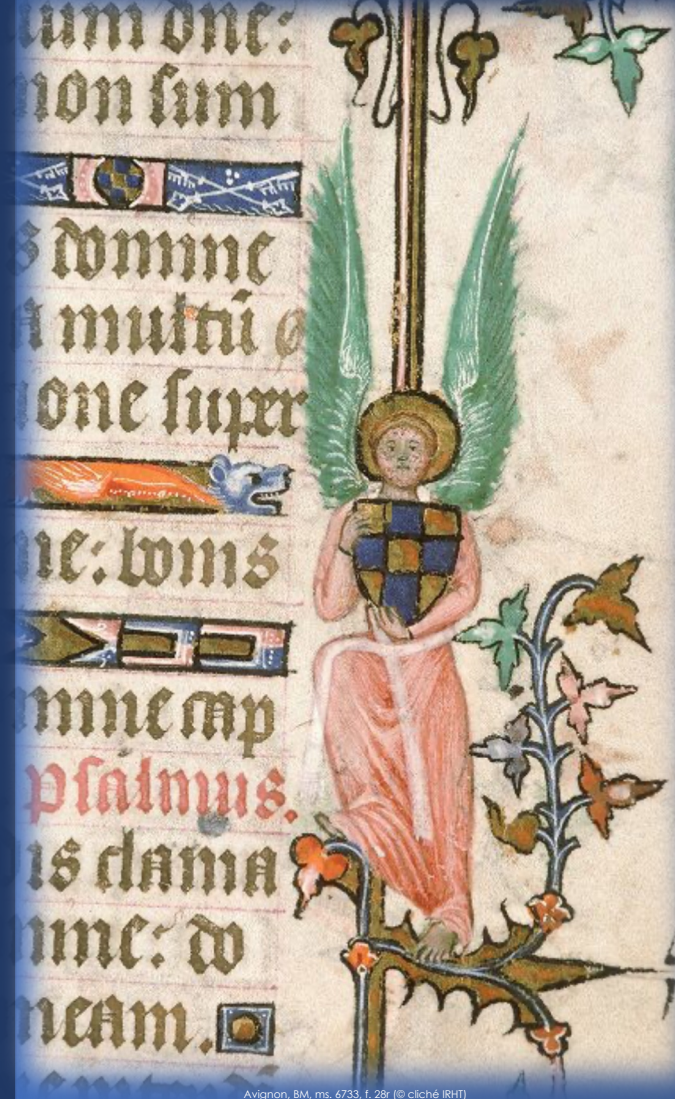 lum dne:
non sum
s domine
a multū
one super
ne: bonus
mine cap
Psalmus.
is clama
mine: do
neam.
Avignon, BM, ms. 6733, f. 28r (© cliché IRHT)